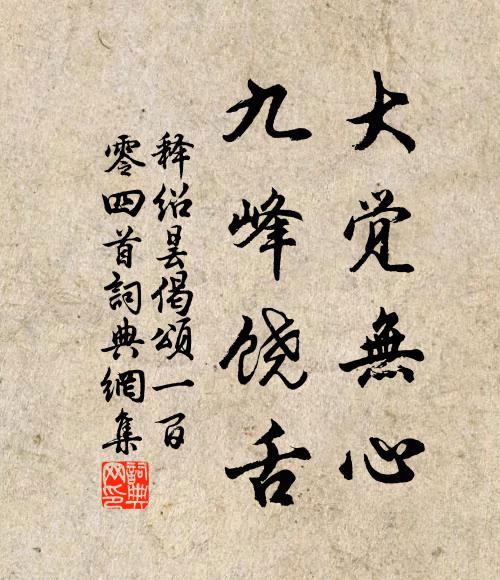 大觉無心
九峰饶舌
释绍昙偈頌一百
零四首詞典網集
詞典
网印